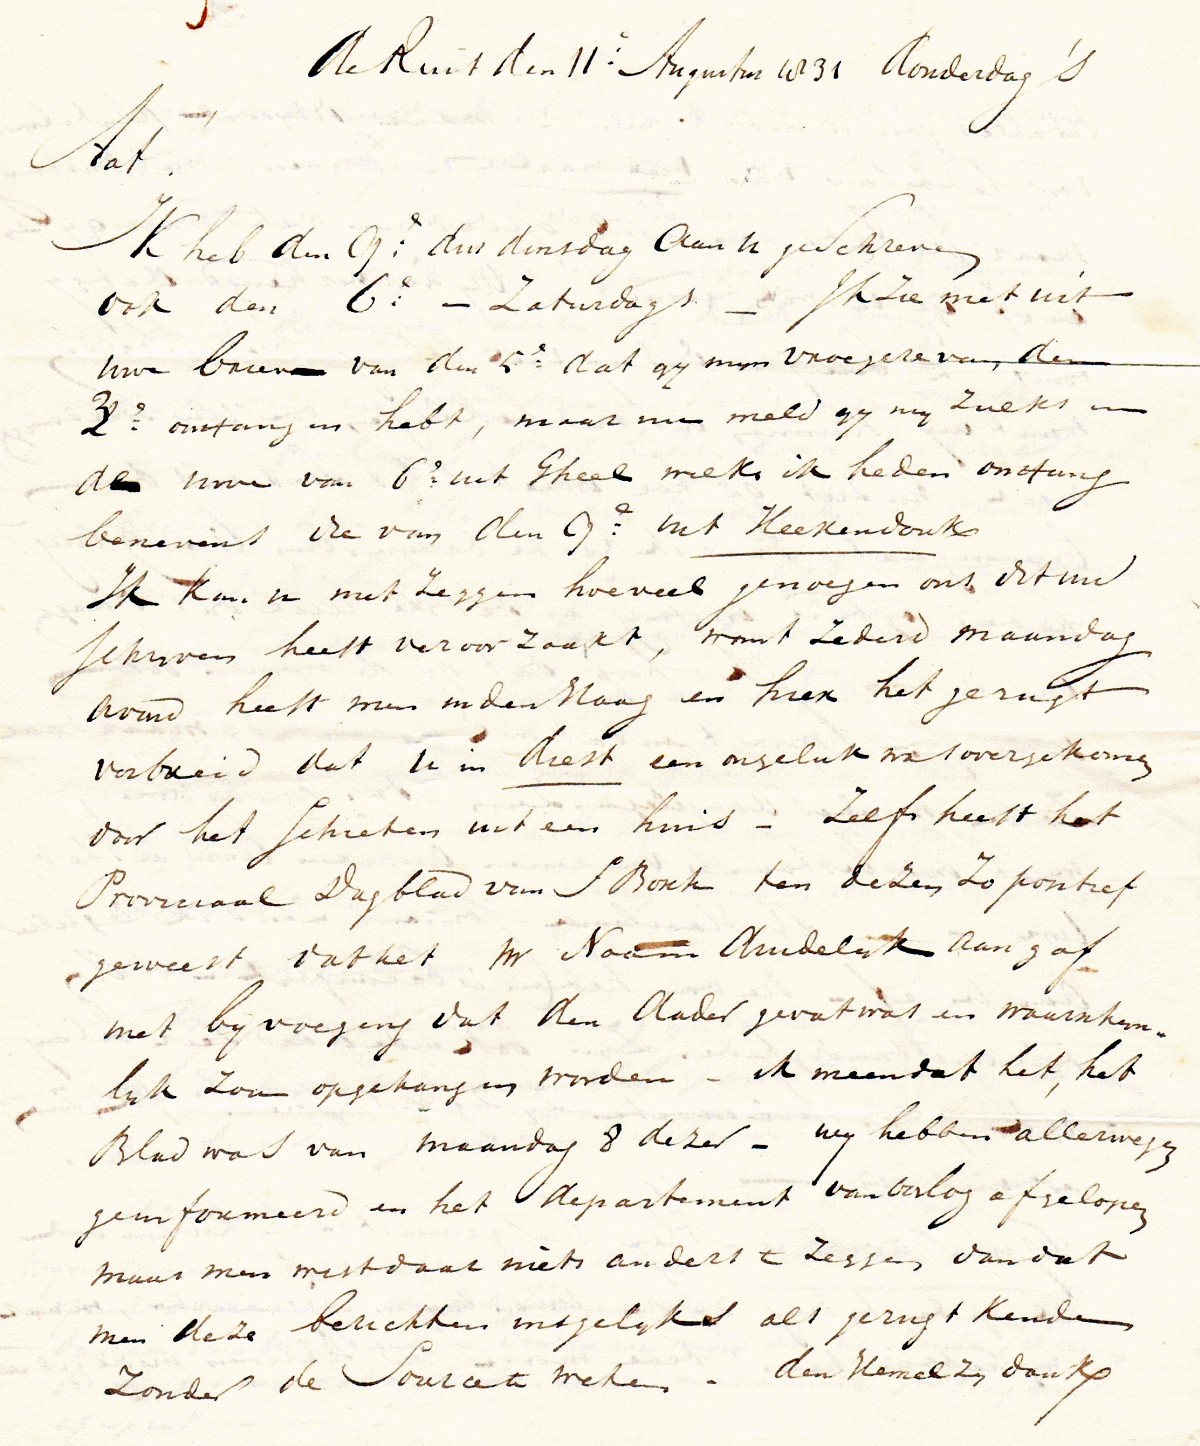 de Ruit den 11e Augustus 1831 donderdag's
Aat.
Ik heb den 9e dus dinsdag aan u geschreven
ook den 6e - Zaturdags - Ik zie niet uit
uwe brieve van den 5e dat gy myn vroegere van den
3e omfangen hebt, maar nu meld gy my zulks in
de uwe van 6e uit Gheel welke ik heden omfang
benevens die van den 9e uit Heekendonk
Ik kan u niet zeggen hoeveel genoegen ons dit uw
schryven heeft veroorzaakt, want zederd maandag
avond heeft men in den Haag en hier het gerugt
verbreid dat u in diest een ongeluk was overgekomen
door het schieten uit een huis - Zelfs heeft het
Provinciaal Dagblad van S Bosch ten dezen zo positief
geweest dat het uw Naam duidelyk aangaf
met byvoeging dat den dader gevat was en waarschyn-
lyk zou opgehangen worden - ik meen dat het, het
Blad was van maandag 8 dezer - wy hebben allerwegen
geinformeerd en het departement van oorlog afgelopen
maar men wist daar niets anders te zeggen dan dat
men deze berichten insgelyks als gerugt kende
zonder de Source te weten - den Hemel zy dank